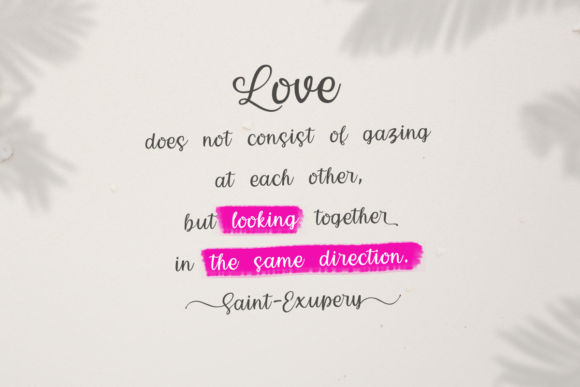 Love
does not consist of gazing
at each other,
but looking together
in the same direction.
Saint-Exupery